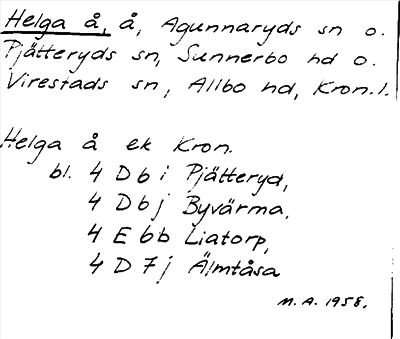 Helga å, å, Agunnaryds sn o.
Pjätteryds sn, Sunnerbo hd o.
Virestads sn, Allbo hd, Kron.l.
Helga å ek Kron.
bl. 4 D 6 i Pjätteryd,
4 D 6 j Byvärma,
4 E 6 b Liatorp,
4 D 7 j Älmtåsa
M.A. 1958.